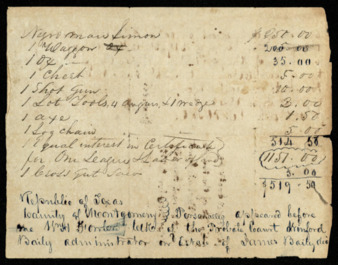 Negro man Simon $ 950.00
1 Waggon 200.00
1 Ox 35.00
1 Chest 5.00
1 Shot Gun 10.00
1 Lot Tools, 4 augurs &
1 axe 1.50
1 Log chain 5.00
Equal interest in Certificate 514 50
for One League & Labor of 1151.00
1 Cross Cut Saw 5.00
$519.50
Republic of Texas
County of Montgomery } Personally appeared before
me Wm Gordon clk of the Probate Court
Baily administrator on Estate of James Baily, dec